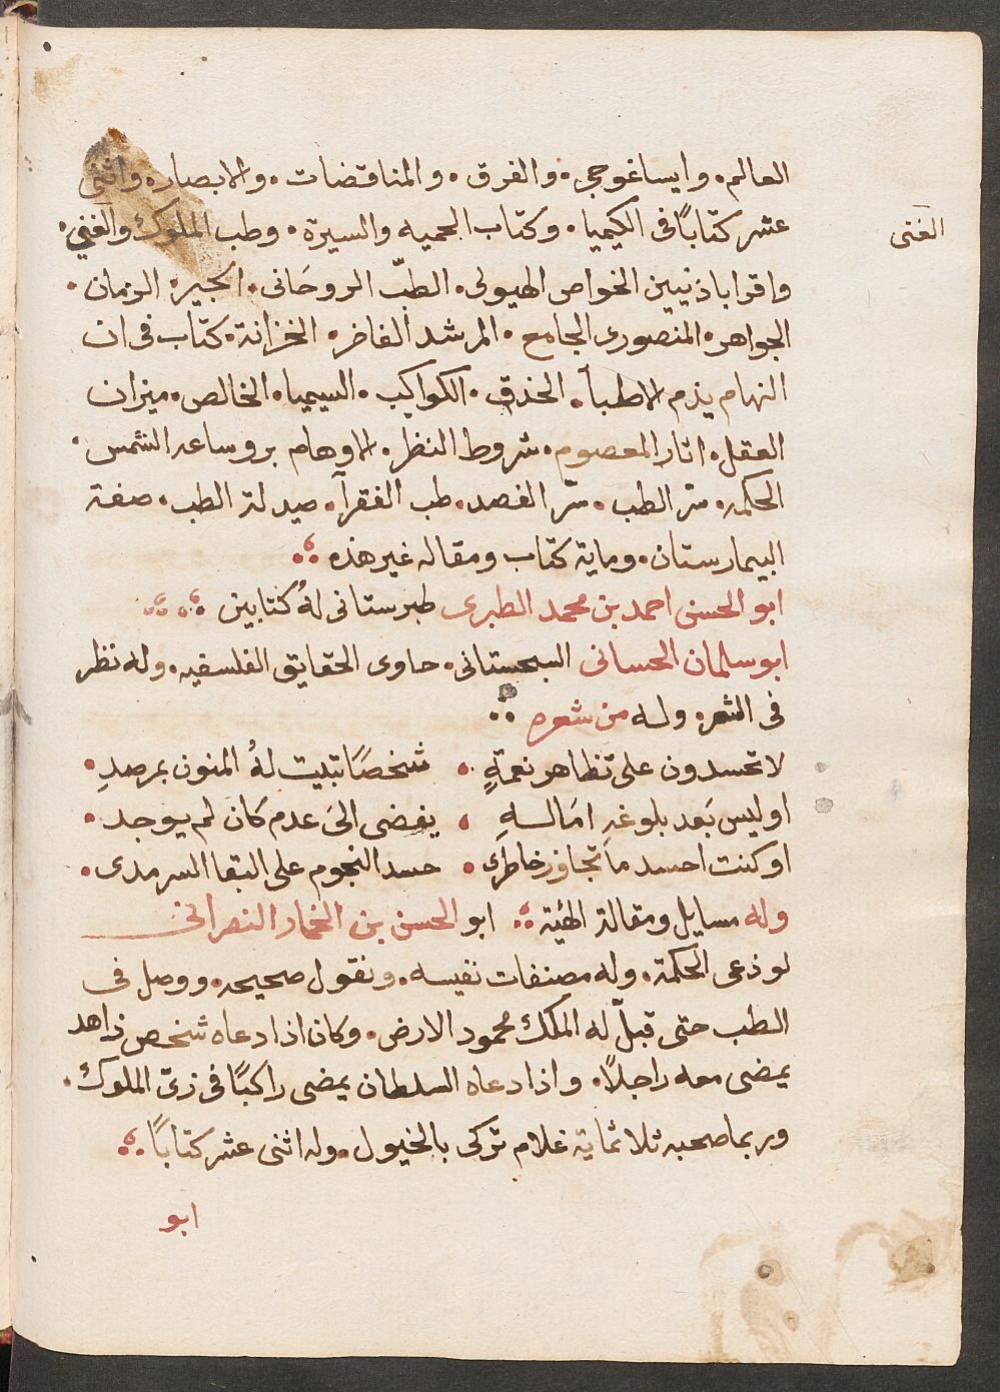 العالم. وايساغوجى. والفرق. والمناقضات. والابصار. واثنى
عشر كتاباً فى الكيميا. وكتاب الحميه والسيرة. وطب الملوك والغنى.
الفتى
واقراباذنيين الخواص الهيولى. الطبّ الروحَانى. الجبيرة الرمان.
الجواهر. المنصورى الجامع. المرشد الفاخر. الخزانة. كتاب فى ان
النهام يذم الاطبآ. الحذق. الكواكب. السيميا. الخالص. ميزان
العقل. اثار المعصوم. شروط النظر. الاوهام بروساعه الشمس.
الحكمه. سرّ الطب. سرّ الفصد. طب الفقرآ. صيدلة الطب. صفة
البيمارستان. وماية كتاب ومقاله غير هذه
ابو الحسن احمد بن محمد الطبرى طبرستانى لهُ كتابين
ابو سلمان الحسانى السجستانى. حاوى الحقايق الفلسفيه. وله نظر
فى الشعر. وله من شعره
لا تحسدون على تظاهر نعمةٍ. شخصًا تبيت لهُ المنون بمرصدِ.
اوليس بَعد بلوغه امَالهِ . يفضى الىَ عدم كان لم يوجد.
او كنت احسد ما تجاوز خاطرى. حسد النجوم على البقا السرمدى.
وله مسايل ومقالة الهئية ابو الحسن بن الخمار النصرانى
لوذعى الحكمة. وله مصنفات نفيسه. ونقول صحيحه. ووصل فى
الطب حتى قبلّ له الملك محمود الارض. وكان اذا دعاه شخص زاهد
يمضى معه راجلاً. واذا دعاه السلطان يمضى راكبًا فى زىّ الملوك.
وربما صحبه ثلاثماية غلام تركى بالخيول. وله اثنى عشر كتابًا
ابو